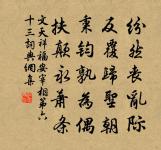 紛然喪亂際
反覆歸聖朝
秉鈞孰為偶
扶顛永蕭條
文天祥福安宰相第六
十三詞典網集